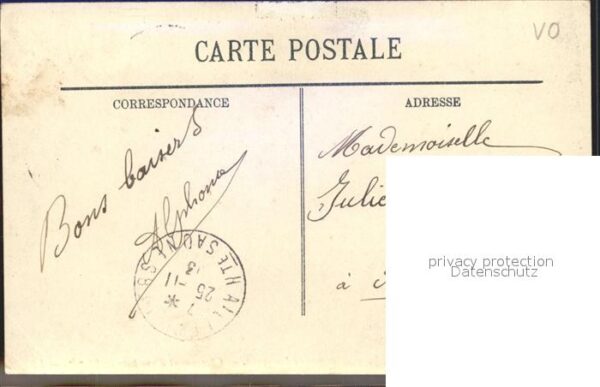 VO
CARTE POSTALE
CORRESPONDANCE
ADRESSE
Bons baisers
Alphonse
Mademoiselle
Julie
à
privacy protection
Datenschutz
HTE SAONE
7
25 -11
13